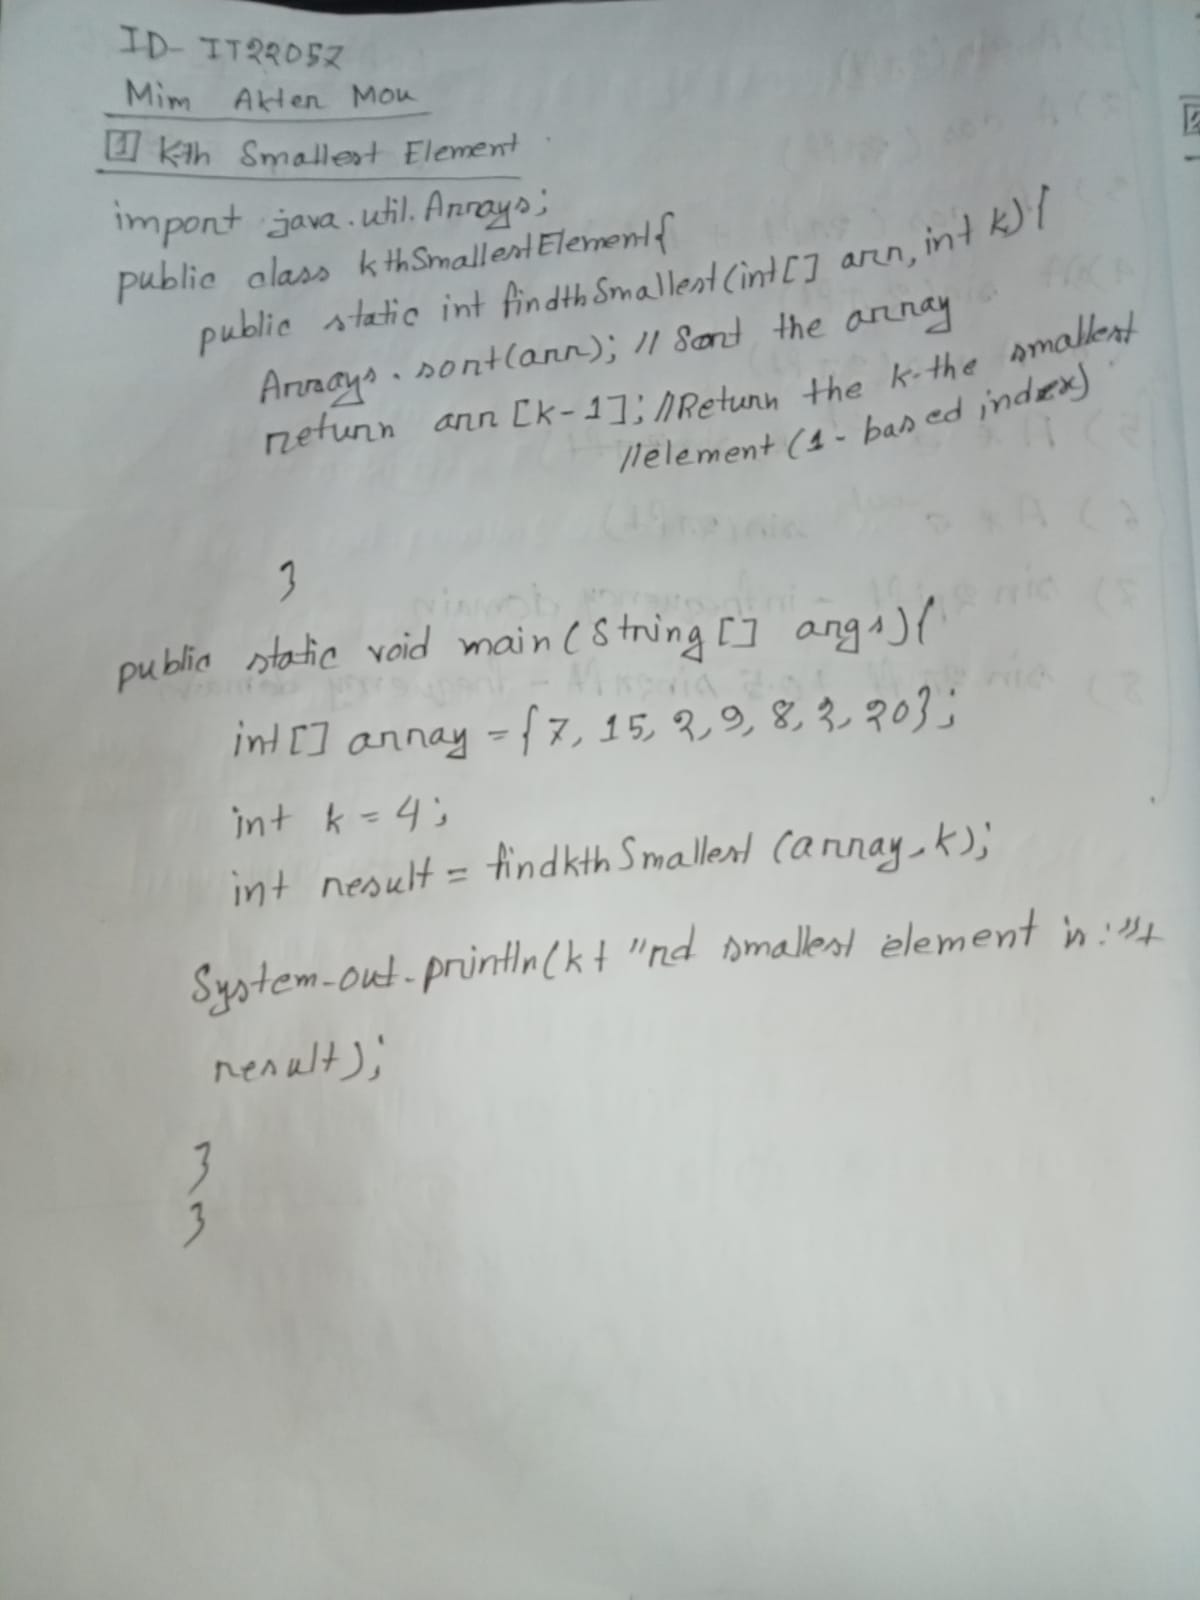 ID- IT22052
Mim Akter Mou
1 Kth Smallest Element
import java.util.Arrays;
public class kthSmallestElement{
public static int findthSmallest(int[] arr, int k){
Arrays.sort(arr); // Sort the array
return arr [k-1]; //Return the k-the smallest
//element (1-based index)
}
public static void main(String[] args){
int[] array = {7, 15, 2, 9, 8, 2, 20};
int k = 4;
int result = findkthSmallest (array, k);
System.out.println(k+ "nd smallest element is:"+
result);
}
}